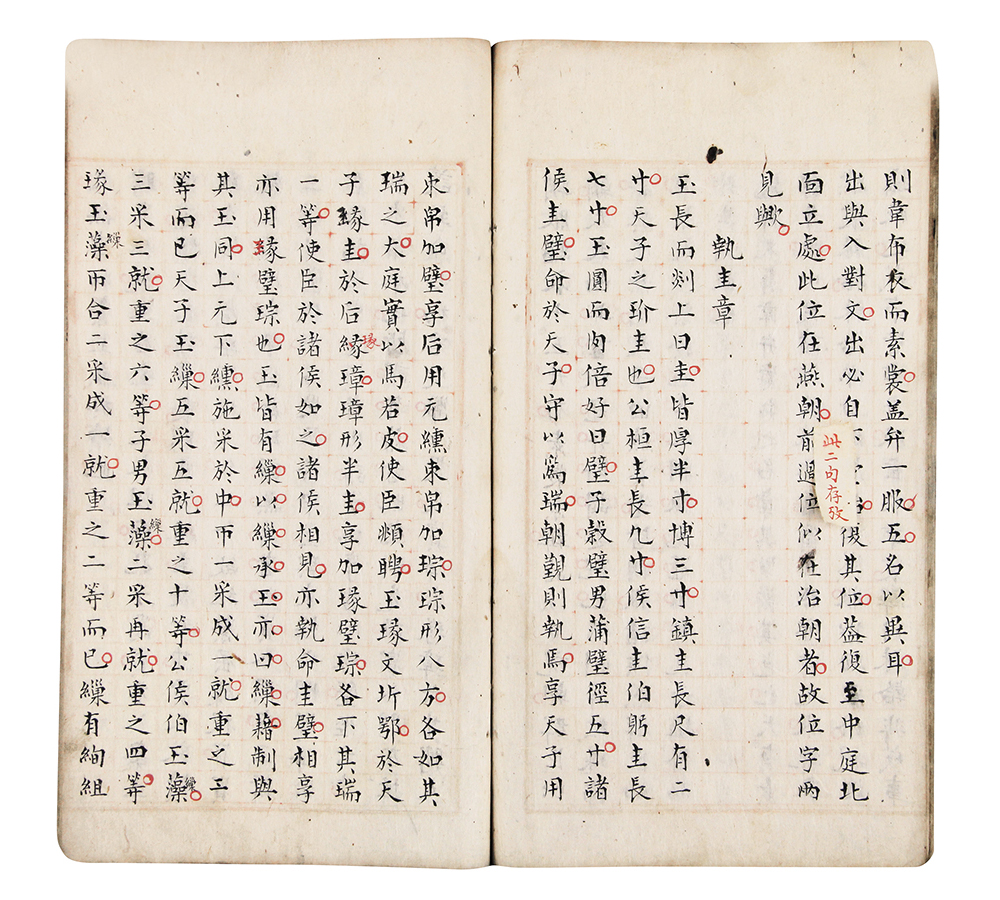 則韋布衣而素裳盖弁一服五名以異耳
出與入對文出必自下位後其位葢復至中庭北
面立處此位在燕朝前過位似在治朝者故位字兩
此二句存攷
見歟
執圭章
玉長而剡上曰圭皆厚半寸博三寸鎮圭長尺有二
寸天子之玠圭也公桓圭長九寸侯信圭伯躬圭長
七寸玉圓而肉倍好曰璧子榖璧男蒲璧徑五寸諸
侯圭璧命於天子守以爲瑞朝覲則執焉享天子用
束帛加璧享后用元纁束帛加琮琮形八方各如其
瑞之大庭實以馬若皮使臣頫聘玉瑑文圻鄂於天
子緣圭於后緣璋璋形半圭享加瑑璧琮各下其瑞
瑑
一等使臣於諸侯如之諸侯相見亦執命圭璧相享
亦用緣璧琮也玉皆有繅以繅承玉亦曰繅藉制與
其玉同上元下纁施采於中帀一采成一就重之五
等而已天子玉繅五采五就重之十等公侯伯玉藻
繅
三采三就重之六等子男玉藻二采再就重之四等
繅
瑑玉藻帀台二采成一就重之二等而已繅有絢組
繅